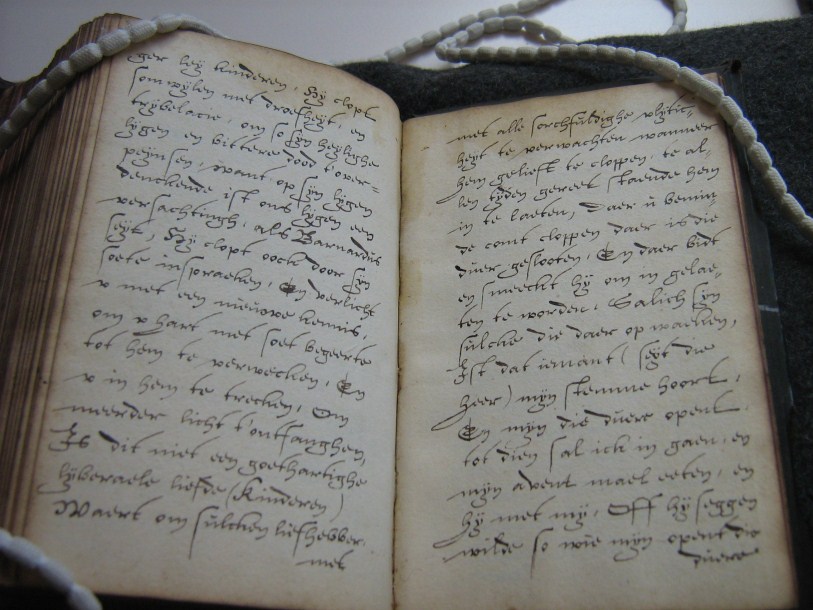 ger ley kinderen, Hy clopt
somwylen met droefheyt, en
trybelacie om so syn heylighe
lygen en bittere doot t'over=
peynsen, want op syn lygen
denckende ist ons lygen een
versachtingh, als Barnardus
seyt, Hy clopt oock door syn
soete inspraeken, En verlicht
v met een nieuwe kennis,
om v hart met soet begeerte
tot hem te verwecken, En
v in hem te trecken, Om
meerder licht t'ontfanghen,
Is dit niet een goethartighe
lyberaele liefde (kinderen)
Waert om sulcken liefhebber
met
met alle sorchfuldighe vlytic=
heyt te verwachten wanneer
hem gelieft te cloppen, te al=
len tyden gereet staende hem
in te laeten, Daer u bemin=
de comt cloppen daer is die
duer geslooten, En daer bidt
en smeeckt hy om in gelae=
ten te worden, Salich syn
sulcke die daer op waeken,
Ist dat iemant (seyt die
heer) myn stemme hoort,
En myn die duere opent
tot dien sal ick in gaen, en
myn avent mael eeten, en
hy met my, Off hy seggen
wilde so wie myn opent die
duere